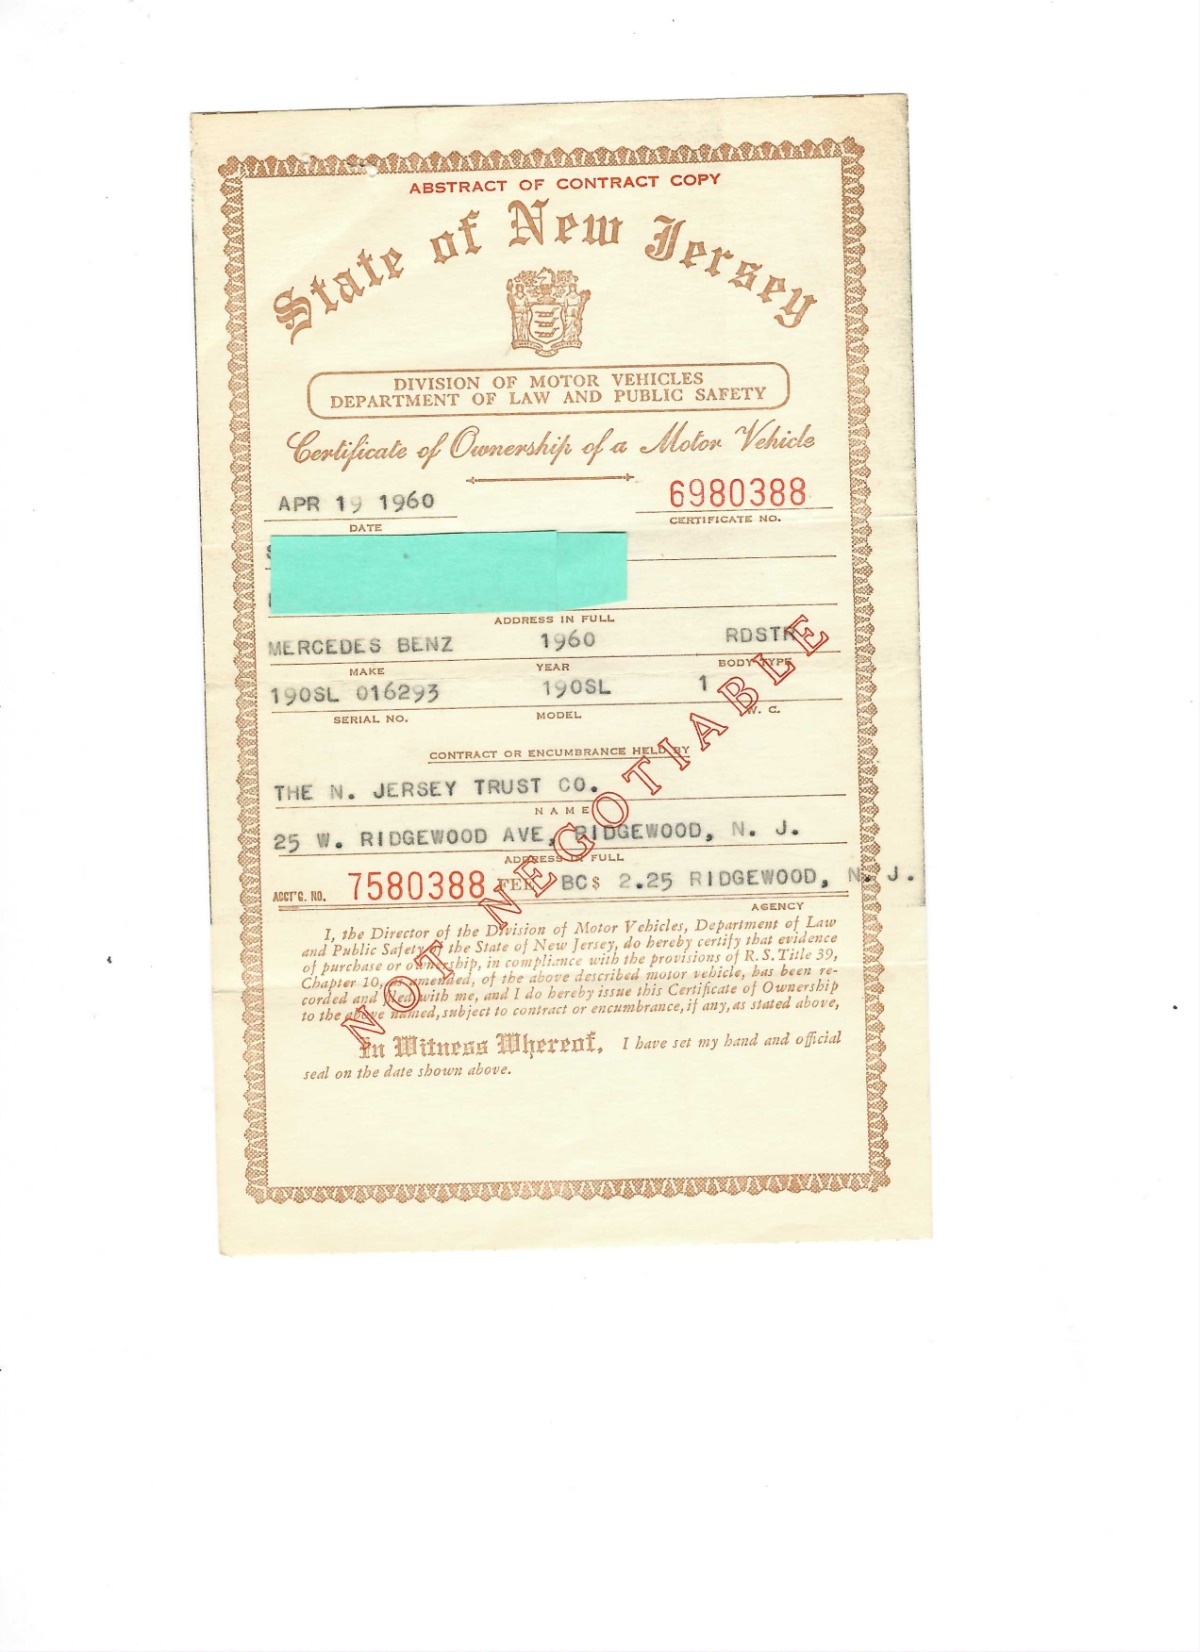 ABSTRACT OF CONTRACT COPY
State of New Jersey
DIVISION OF MOTOR VEHICLES
DEPARTMENT OF LAW AND PUBLIC SAFETY
Certificate of Ownership of a Motor Vehicle
APR 19 1960 6980388
DATE CERTIFICATE NO.
ADDRESS IN FULL
MERCEDES BENZ 1960 RDSTR
MAKE YEAR BODY TYPE
190SL 016293 190SL 1
SERIAL NO. MODEL W. C.
CONTRACT OR ENCUMBRANCE HELD BY
THE N. JERSEY TRUST CO.
NAME
25 W. RIDGEWOOD AVE, RIDGEWOOD, N. J.
ADDRESS IN FULL
ACCT'G. NO. 7580388 FEE BC $ 2.25 RIDGEWOOD, N. J.
AGENCY
I, the Director of the Division of Motor Vehicles, Department of Law
and Public Safety of the State of New Jersey, do hereby certify that evidence
of purchase or ownership, in compliance with the provisions of R. S. Title 39,
Chapter 10, as amended, of the above described motor vehicle, has been re-
corded and filed with me, and I do hereby issue this Certificate of Ownership
to the above named, subject to contract or encumbrance, if any, as stated above,
In Witness Whereof, I have set my hand and official
seal on the date shown above.
NOT NEGOTIABLE